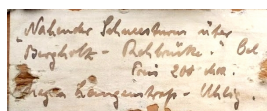 „Nahender Schneesturm über
Bergholz-Rehbrücke.“ Oel
Preis 200 dM.
Jürgen Langenstrass-Uhlig.